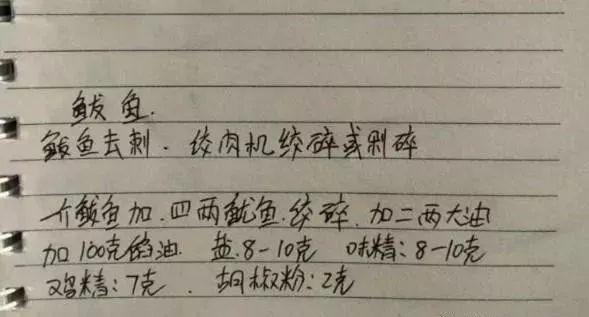 鲅鱼.
鲅鱼去刺. 绞肉机绞碎或剁碎
一斤鲅鱼加.四两鱿鱼.绞碎.加二两大油
加100克色油. 盐.8-10克 味精:8-10克
鸡精:7克. 胡椒粉:2克